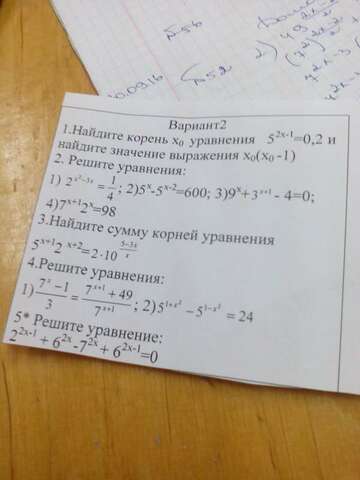 №56
2)
10.09.16
№52
Вариант2
1.Найдите корень x₀ уравнения 5^{2x-1}=0,2 и
найдите значение выражения x₀(x₀ -1)
2. Решите уравнения:
1) 2^{x²-3x} = 1/4; 2)5^x-5^{x-2}=600; 3)9^x+3^{x+1} - 4=0;
4)7^{x+1}2^x=98
3.Найдите сумму корней уравнения
5^{x+1}2^{x+2}=2·10^{(5-3x)/x}
4.Решите уравнения:
1) (7^x -1)/3 = (7^{x+1} + 49)/7^{x+1}; 2)5^{1+x²} - 5^{1-x²} = 24
5* Решите уравнение:
2^{2x-1} + 6^{2x} -7^{2x} + 6^{2x-1}=0